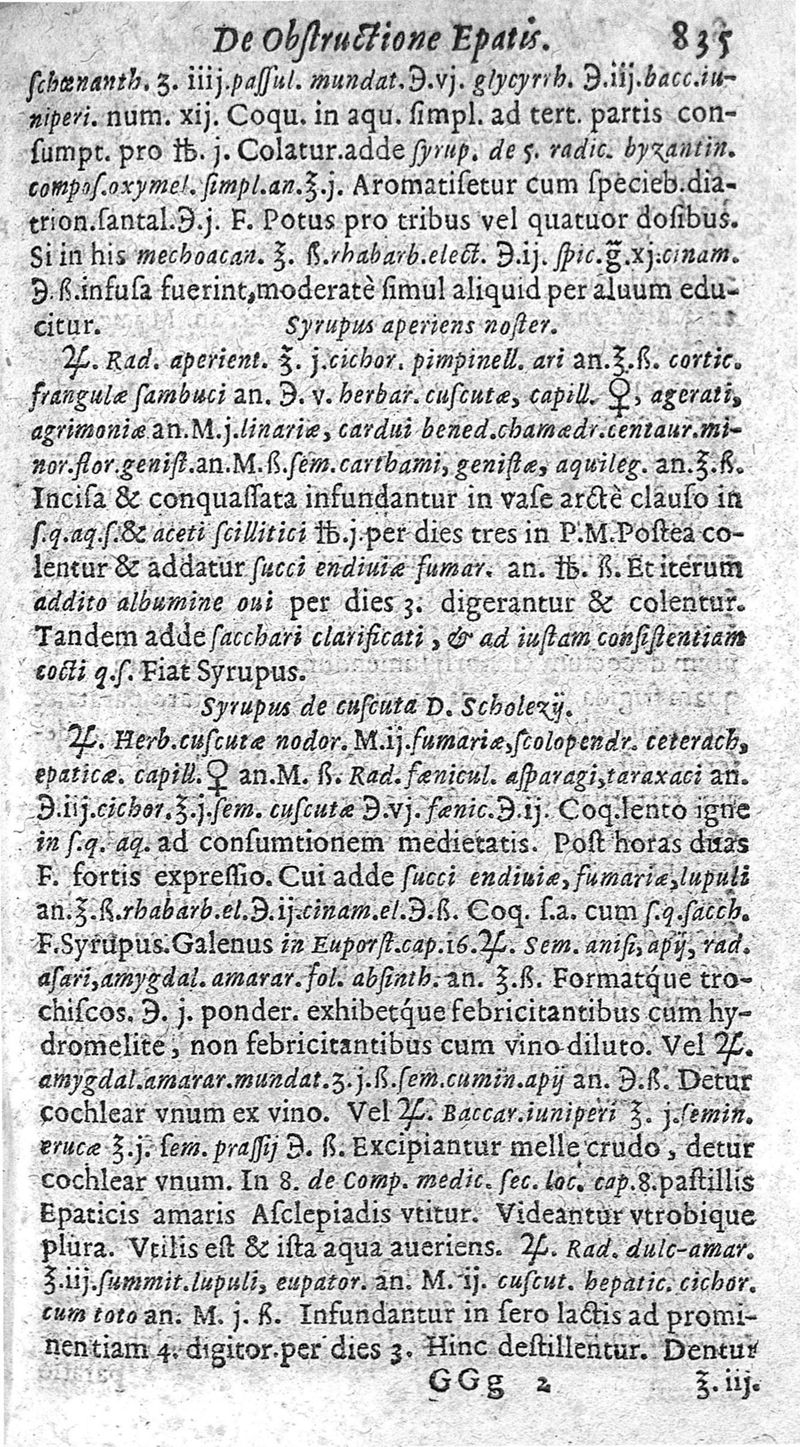 De Obſtructione Epatis. 835
ſchœnanth. ʒ. iiij.paſſul. mundat.℈.vj. glycyrrh. ℈.iij.bacc.iu-
niperi. num. xij. Coqu. in aqu. ſimpl. ad tert. partis con-
ſumpt. pro ℔. j. Colatur.adde ſyrup. de 5. radic. byzantin.
compoſ.oxymel. ſimpl.an.℥.j. Aromatiſetur cum ſpecieb.dia-
trion.ſantal.℈.j. F. Potus pro tribus vel quatuor doſibus.
Si in his mechoacan. ℥. ß.rhabarb.elect. ℈.ij. ſpic.g̃.xj.cinam.
℈.ß.infuſa fuerint,moderatè ſimul aliquid per aluum edu-
citur. Syrupus aperiens noſter.
♃. Rad. aperient. ℥. j.cichor. pimpinell. ari an.℥.ß. cortic.
frangulæ ſambuci an. ℈. v. herbar. cuſcutæ, capill. ♀, agerati,
agrimoniæ an.M.j.linariæ, cardui bened.chamædr.centaur.mi-
nor.flor.geniſt.an.M.ß.ſem.carthami, geniſtæ, aquileg. an.℥.ß.
Inciſa & conquaſſata infundantur in vaſe arctè clauſo in
ſ.q.aq.ſ.& aceti ſcillitici ℔.j.per dies tres in P.M.Poſtea co-
lentur & addatur ſucci endiuiæ fumar. an. ℔. ß. Et iterum
addito albumine oui per dies 3. digerantur & colentur.
Tandem adde ſacchari clarificati, & ad iuſtam conſiſtentiam
cocti q.ſ. Fiat Syrupus.
Syrupus de cuſcuta D. Scholezij.
♃. Herb.cuſcutæ nodor. M.ij.fumariæ,ſcolopendr. ceterach,
epaticæ. capill.♀ an.M. ß. Rad.fœnicul. aſparagi,taraxaci an.
℈.iij.cichor.℥.j.ſem. cuſcutæ ℈.vj. fœnic.℈.ij. Coq.lento igne
in ſ.q. aq. ad conſumtionem medietatis. Poſt horas duas
F. fortis expreſſio. Cui adde ſucci endiuiæ,fumariæ,lupuli
an.℥.ß.rhabarb.el.℈.ij.cinam.el.℈.ß. Coq. ſ.a. cum ſ.q.ſacch.
F.Syrupus.Galenus in Euporſt.cap.16.♃. Sem. aniſi,apij, rad.
aſari,amygdal. amarar.fol. abſinth. an. ℥.ß. Formatq́ue tro-
chiſcos. ℈. j. ponder. exhibetq́ue febricitantibus cum hy-
dromelite, non febricitantibus cum vino diluto. Vel ♃.
amygdal.amarar.mundat.ʒ.j.ß.ſem.cumin.apij an. ℈.ß. Detur
cochlear vnum ex vino. Vel ♃. Baccar.iuniperi ℥. j.ſemin.
erucæ ℥.j. ſem. praſſij ℈. ß. Excipiantur melle crudo, detur
cochlear vnum. In 8. de Comp. medic. ſec. loc. cap.8.paſtillis
Epaticis amaris Aſclepiadis vtitur. Videantur vtrobique
plura. Vtilis eſt & iſta aqua aueriens. ♃. Rad. dulc-amar.
℥.iij.ſummit.lupuli, eupator. an. M. ij. cuſcut. hepatic. cichor.
cum toto an. M. j. ß. Infundantur in ſero lactis ad promi-
nentiam 4. digitor.per dies 3. Hinc deſtillentur. Dentur
GGg 2 ℥.iij.